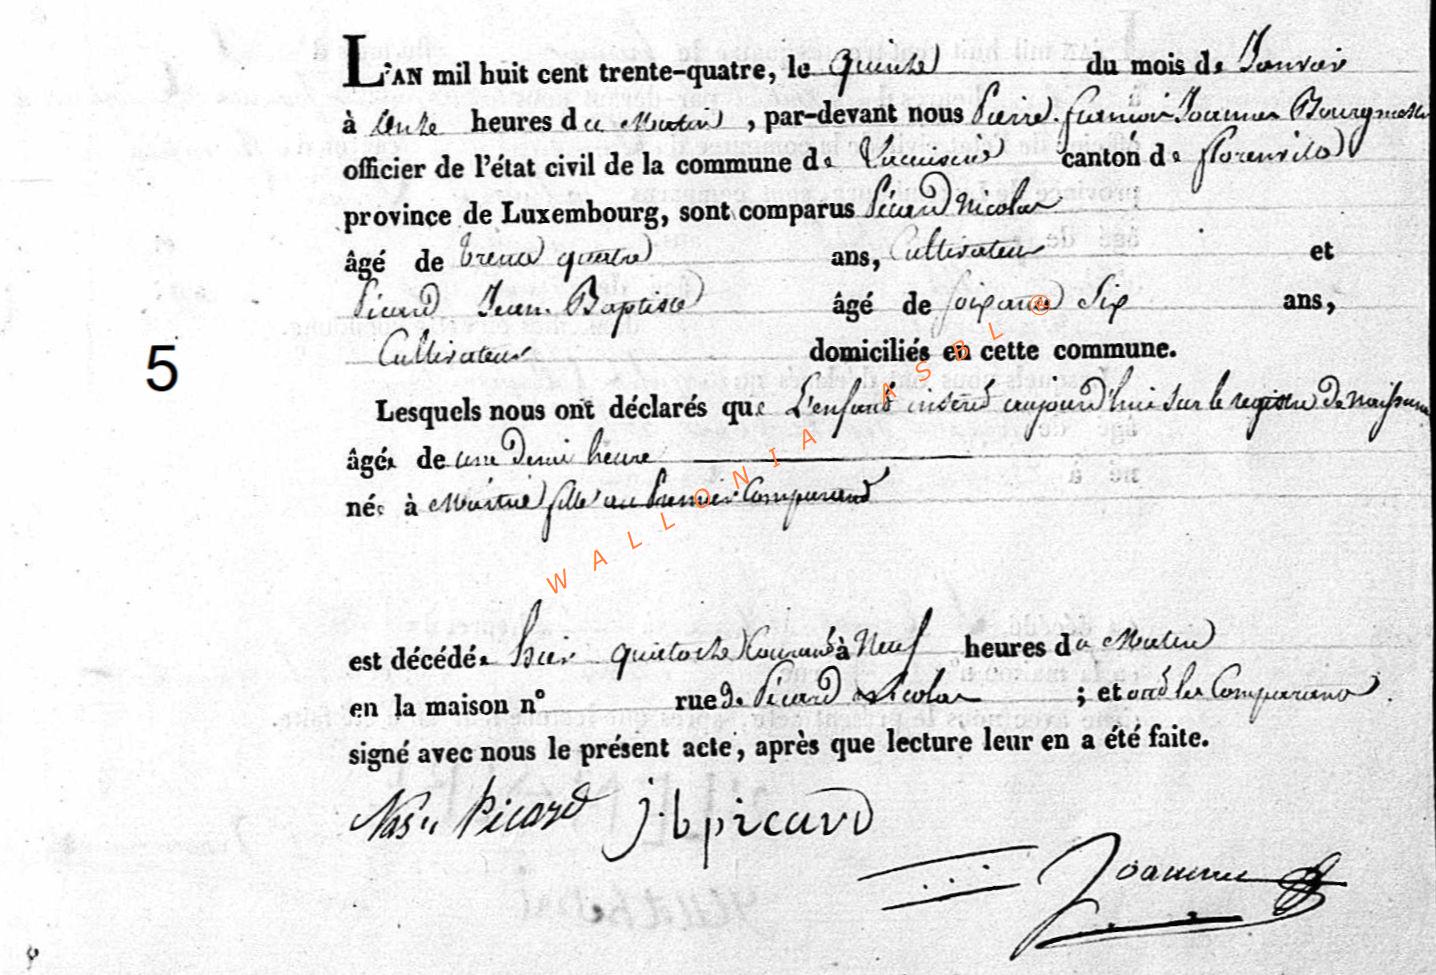 L'AN mil huit cent trente-quatre, le quinze du mois de Janvier
à onze heures du Matin, par-devant nous Pierre Joannes Bourgmestre
officier de l'état civil de la commune de canton de florenville
province de Luxembourg, sont comparus Picard Nicolas
âgé de trente quatre ans, Cultivateur et
Picard Jean Baptiste âgé de soixante Six ans,
Cultivateur domiciliés en cette commune.
5
Lesquels nous ont déclarés que L'enfant inséré aujourd'hui sur le registre de naissance
âgée de une Demi heure
née à fille au Premier Comparant
est décédée hier quatorze Courant à Neuf heures du Matin
en la maison n° rue de Picard Nicolas ; et ont les Comparans
signé avec nous le présent acte, après que lecture leur en a été faite.
Nas Picard j.b picard
Joannes
WALLONIA ASBL @